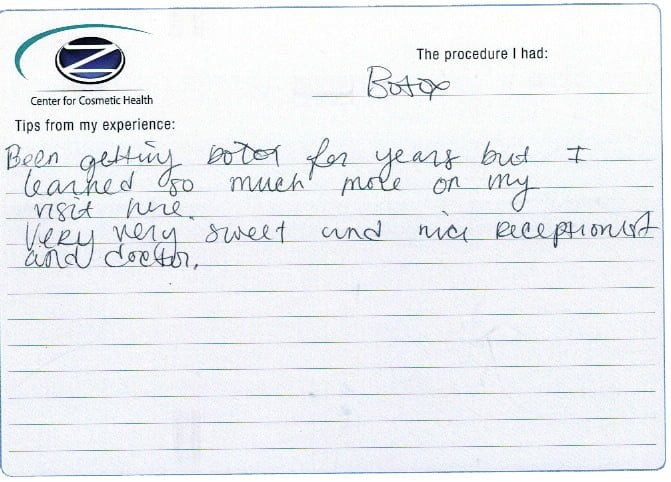 Z
The procedure I had:
Botox
Center for Cosmetic Health
Tips from my experience:
Been getting botox for years but I
learned so much more on my
visit here.
Very very sweet and nice receptionist
and doctor.